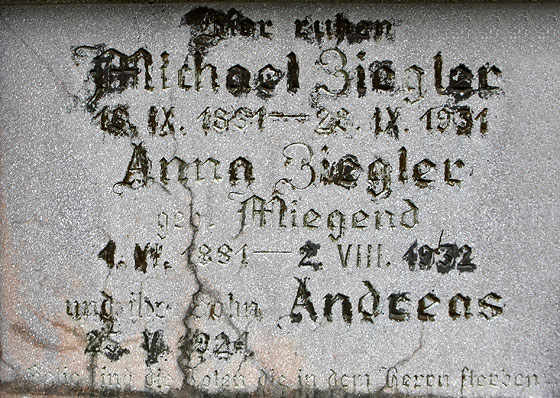 Hier ruhen
Michael Ziegler
18. IX. 1881 — 28. IX. 1931
Anna Ziegler
geb. Miegend
1. VI. 1881 — 2. VIII. 1932
und ihr Sohn Andreas
V. 1924
Selig sind die Toten die in dem Herrn sterben